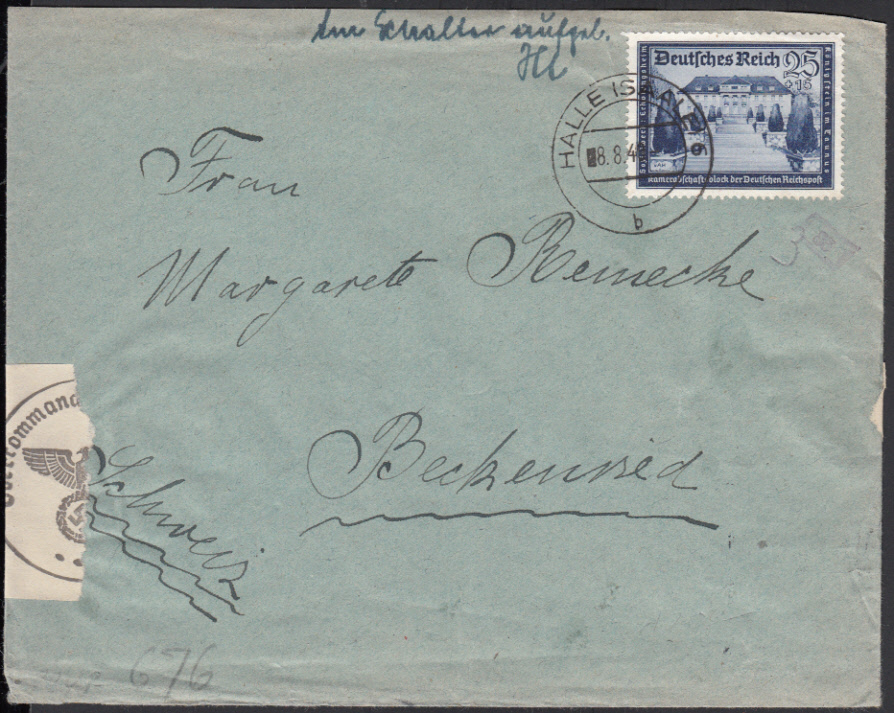 Am Schalter aufgel.
Hl
Deutsches Reich 25
+15
Königstein im Taunus
Kameradschaftsblock der Deutschen Reichspost
HALLE (SAALE) 6
8.8.4
b
Frau
Margarete Reinecke
3
Beckenried
Schweiz
Obercommand
676